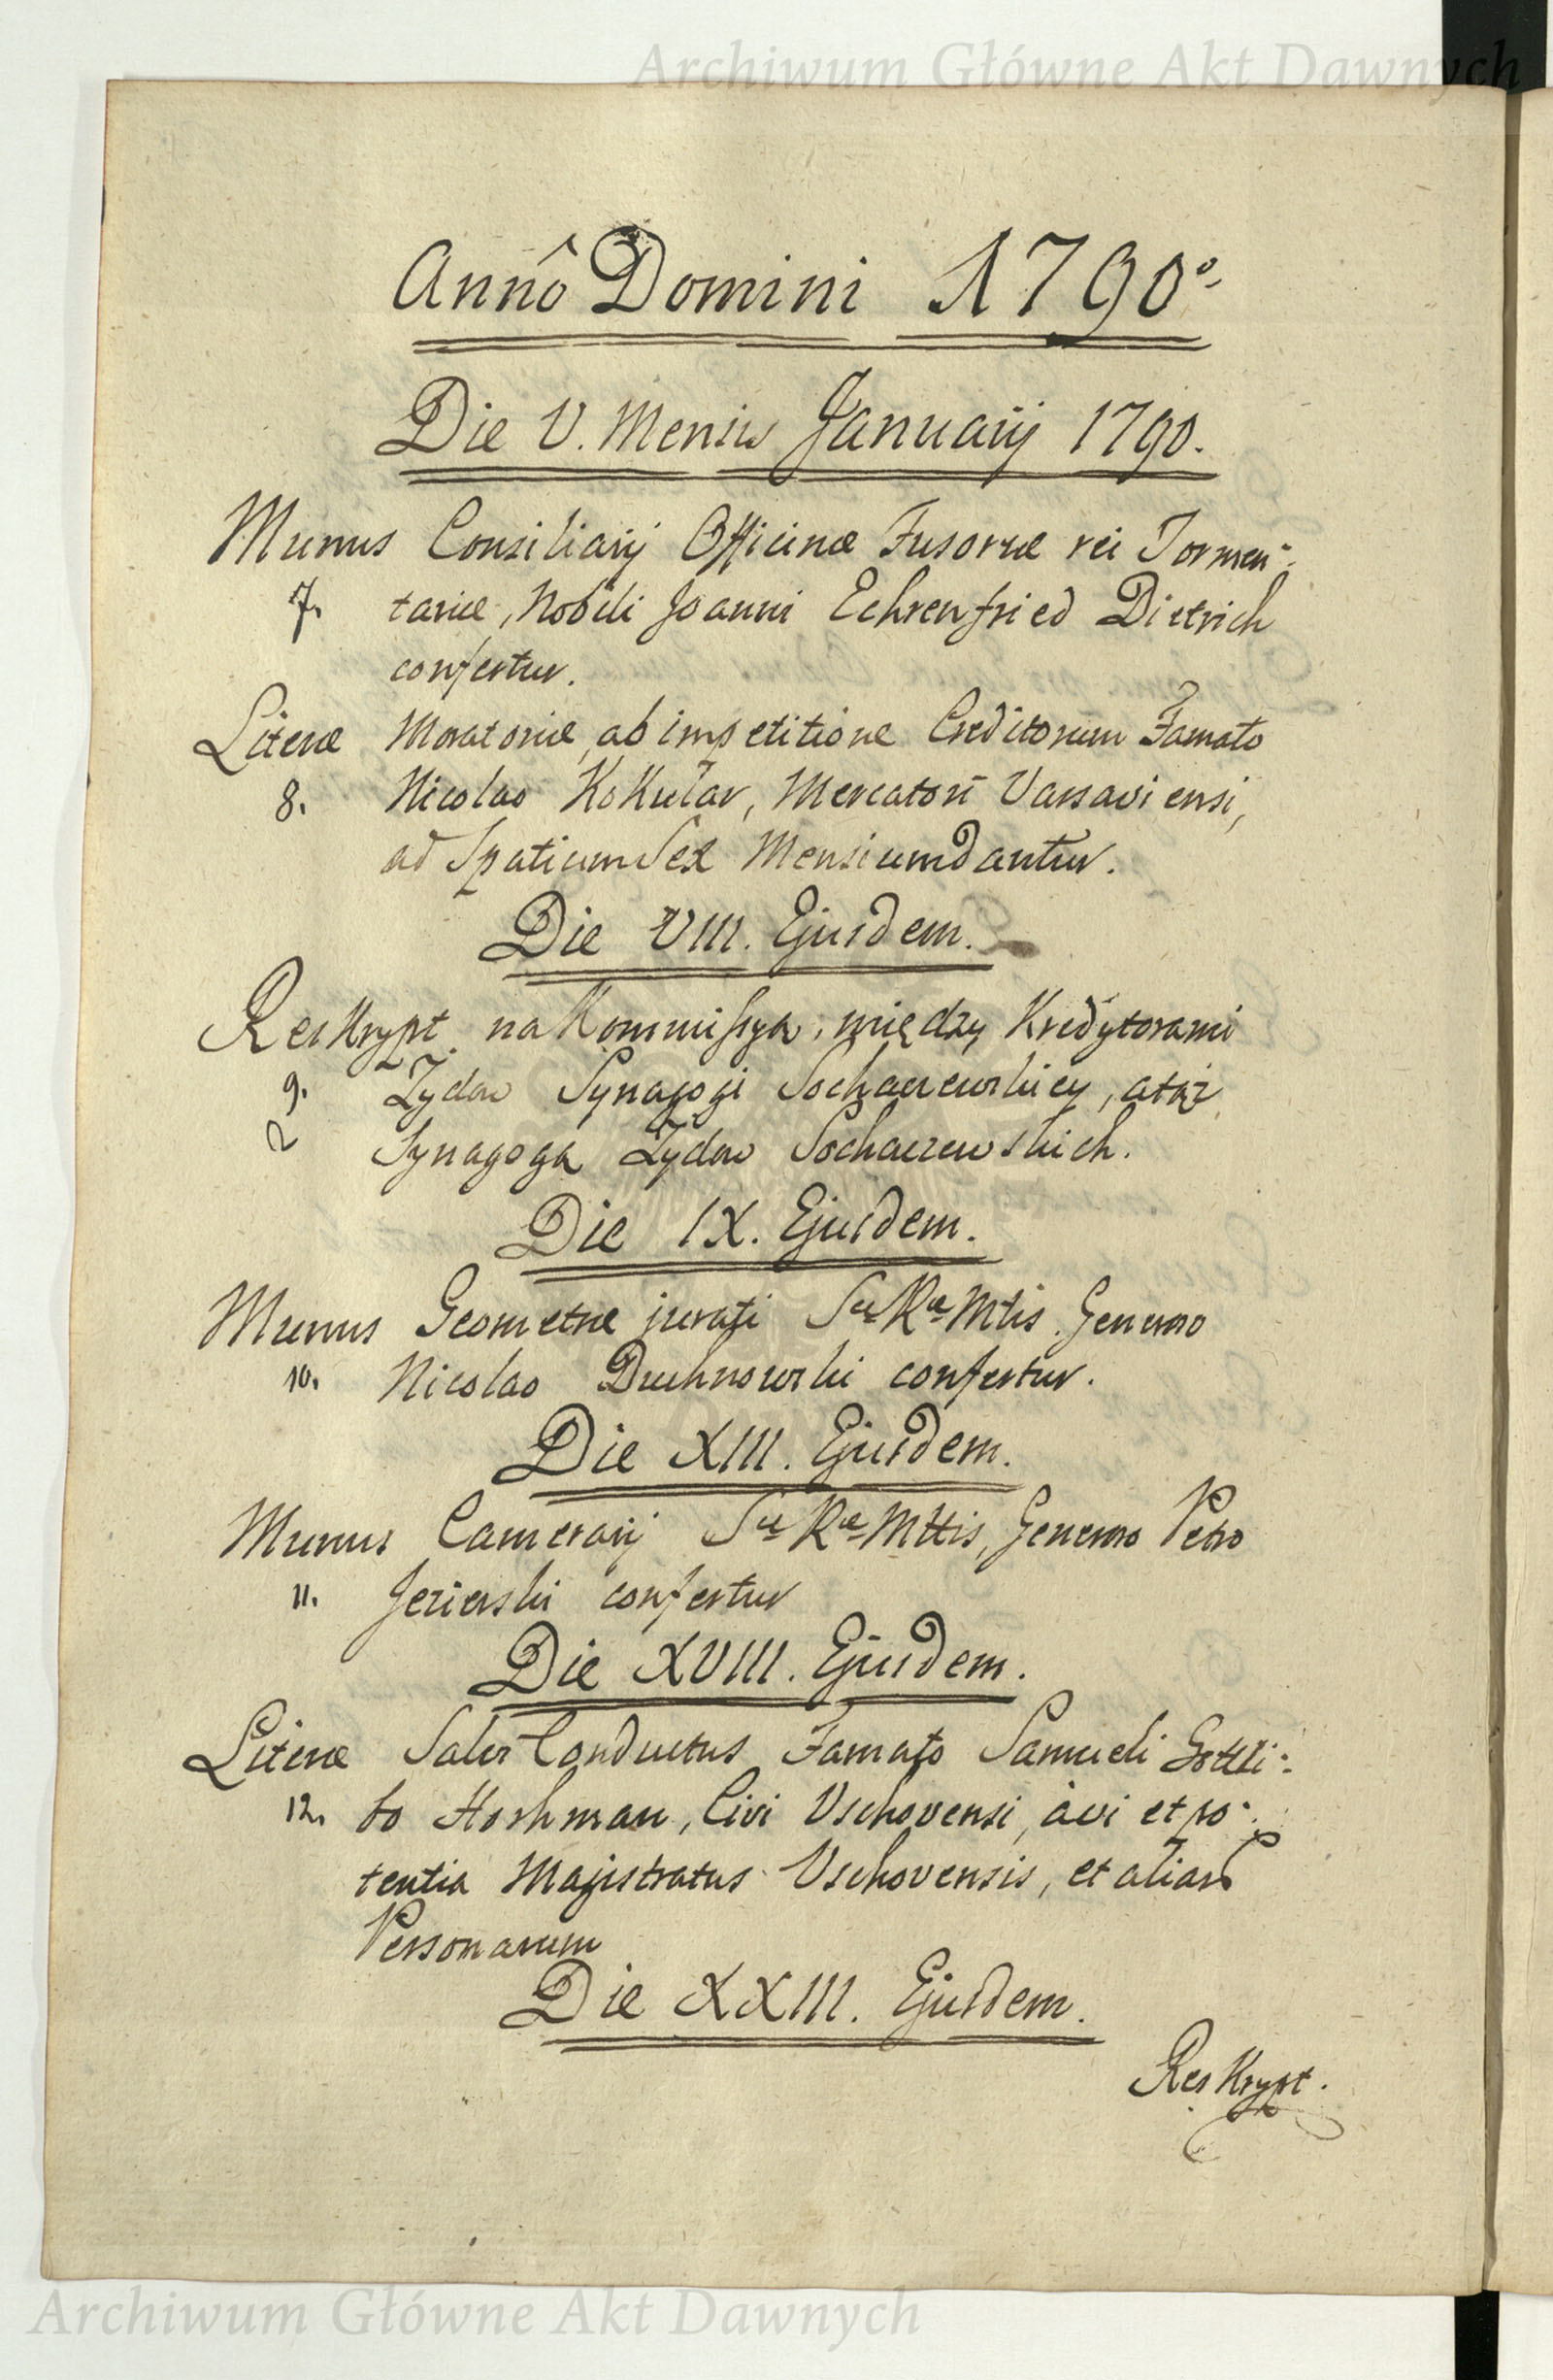 Archiwum Główne Akt Dawnych
Annô Domini 1790º
Die V. Mensis Januarij 1790.
Munus Consiliarij Officinæ Fusoriæ rei Tormen-
7. tariæ, Nobili Joanni Echrenfried Dietrich
confertur.
Literæ Moratoriæ, ab impetitione Creditorum Famato
8. Nicolao Kokular, Mercatori Varsaviensi,
ad Spatium Sex Mensium dantur.
Die VIII. Ejusdem.
Reskrypt na Kommissyą, między Kredytorami
9. Zydow Synagogi Sochaczewskiey, atąż
2 Synagogą Zydow Sochaczewskich.
Die IX. Ejusdem.
Munus Geometræ jurati Sæ Ræ Mtis Generoso
10. Nicolao Duchnowski confertur.
Die XIII. Ejusdem.
Munus Camerarij Sæ Ræ Mttis, Generoso Petro
11. Jezierski confertur
Die XVIII. Ejusdem.
Literæ Salvi Conductus Famato Samueli Gottli-
12. bo Hoshman, Civi Vschovensi, à vi et po-
tentia Magistratus Vschovensis, et aliar
Personarum
Die XXIII. Ejusdem.
Reskrypt.
Archiwum Główne Akt Dawnych